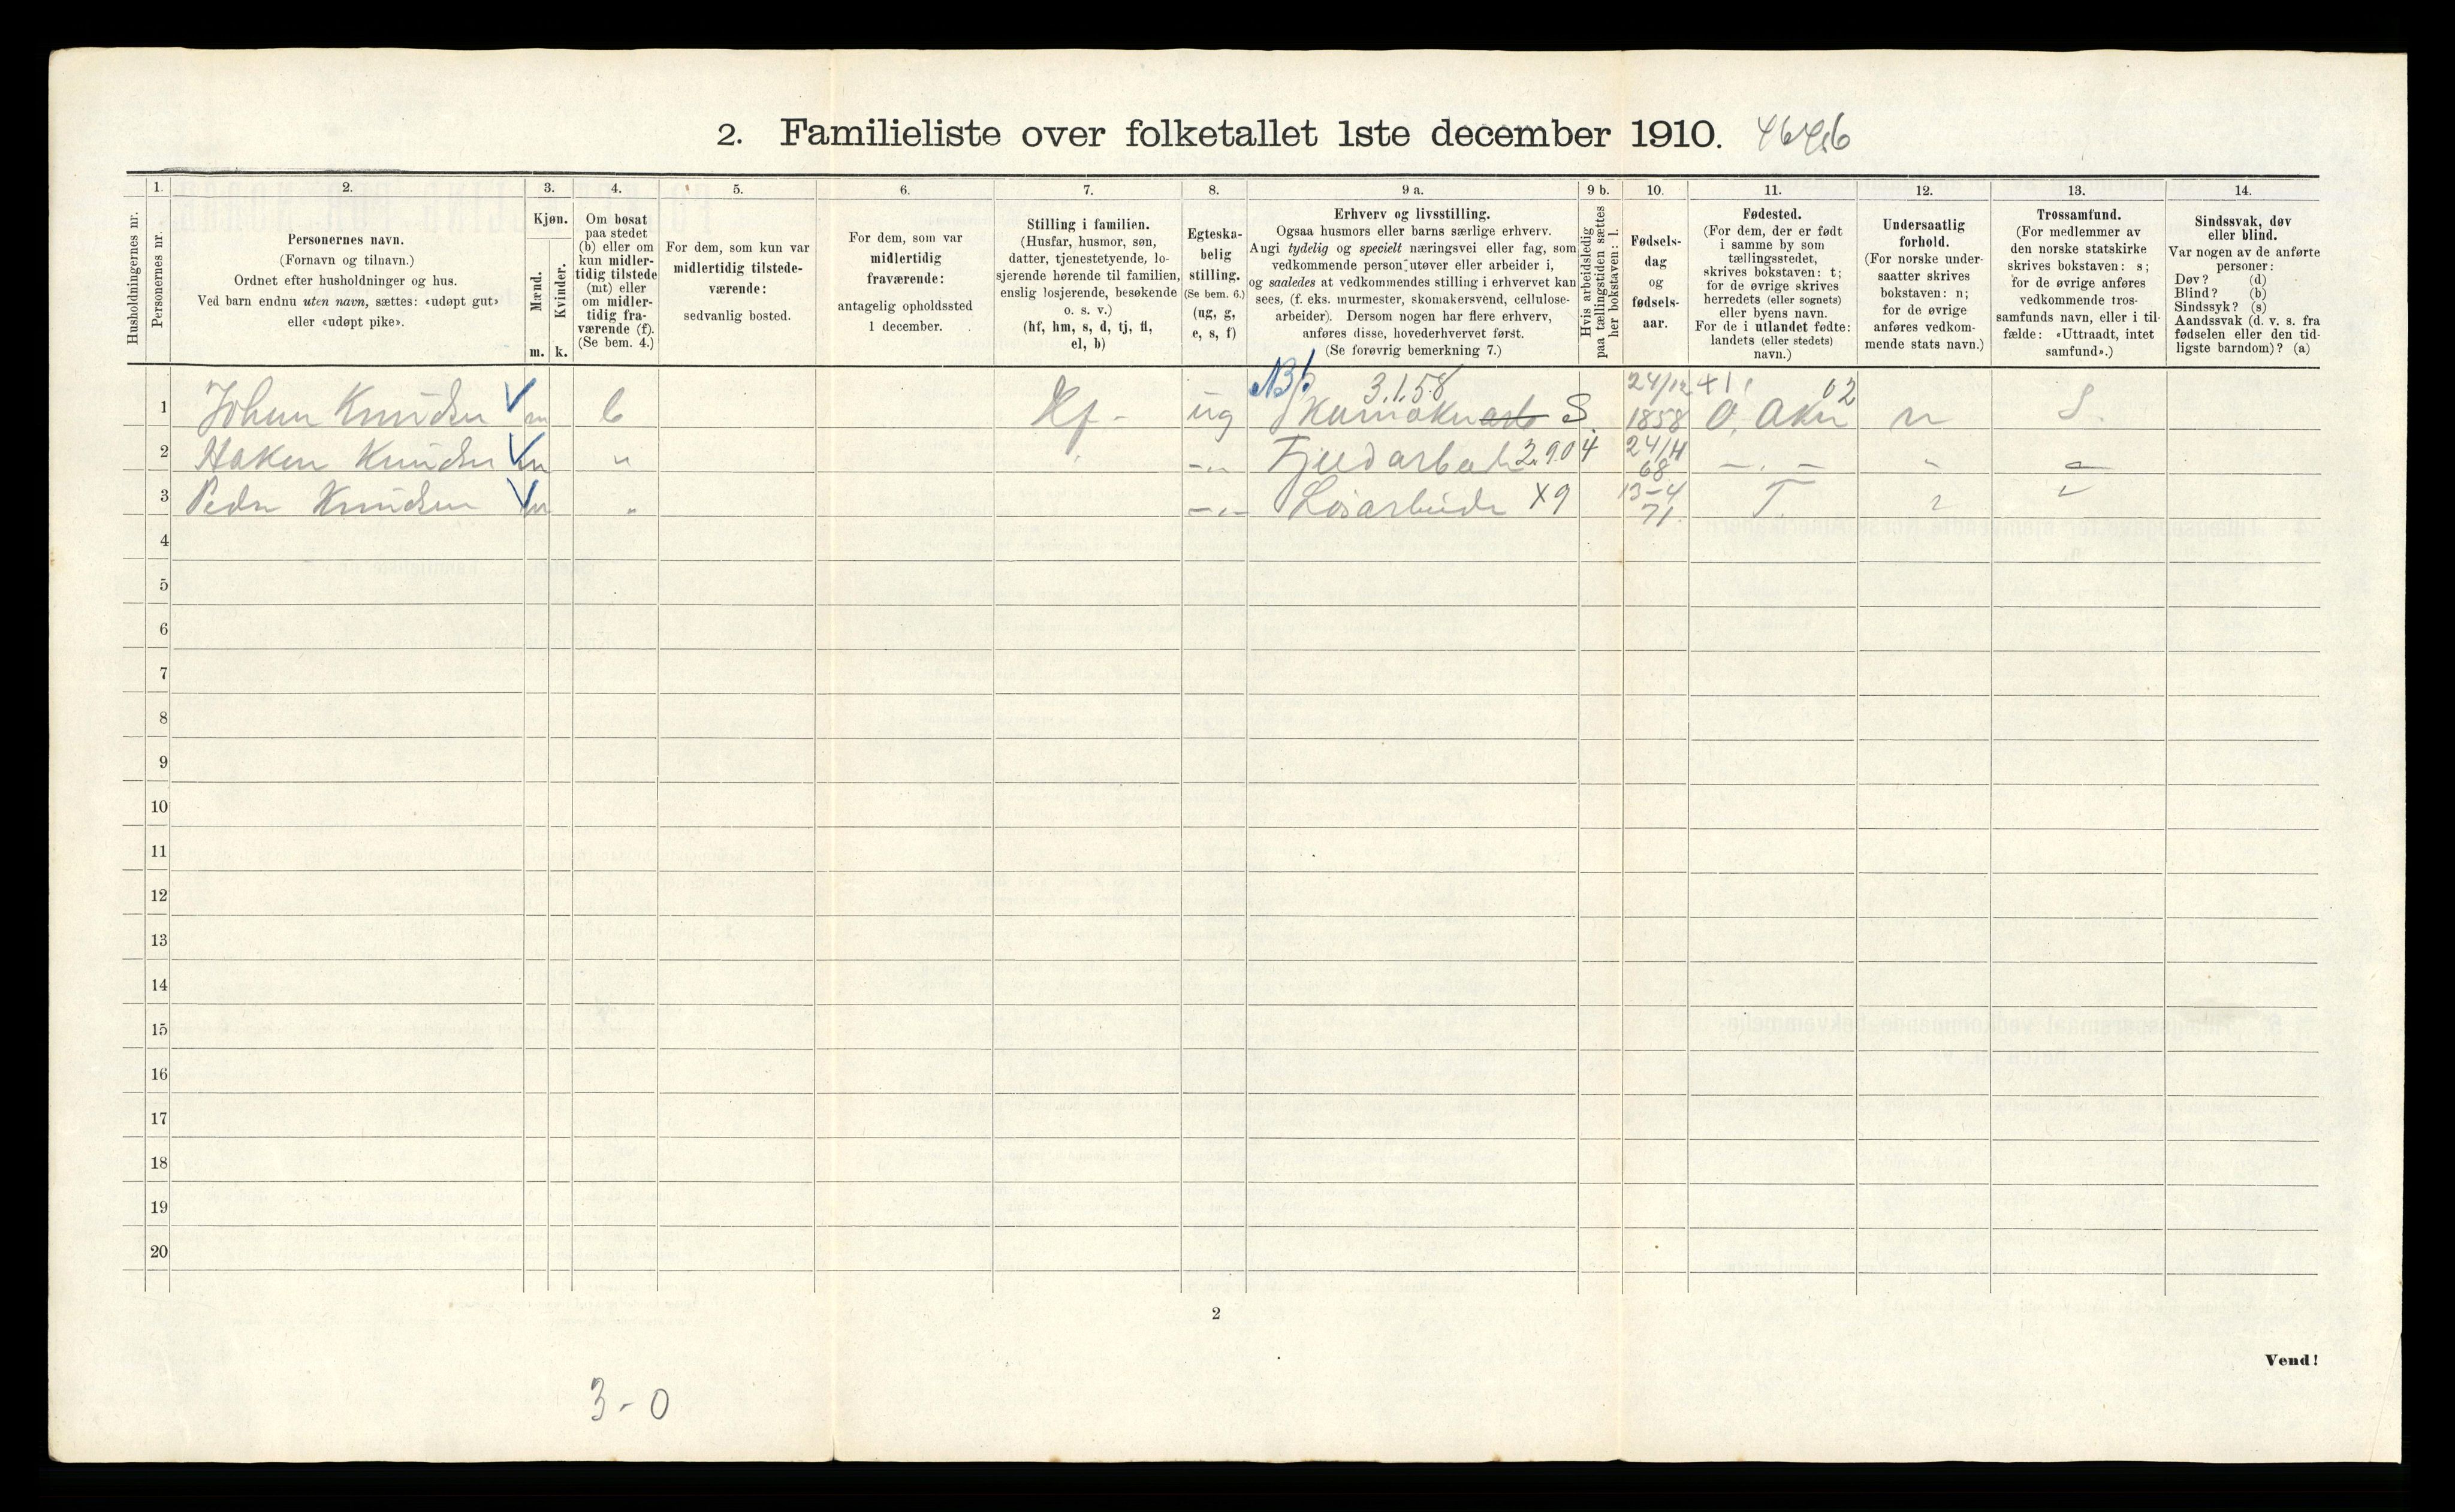 2. Familieliste over folketallet 1ste december 1910. 4646
Husholdningernes nr.
1. Personernes nr.
2. Personernes navn.
(Fornavn og tilnavn.)
Ordnet efter husholdninger og hus.
Ved barn endnu uten navn, sættes: «udøpt gut»
eller «udøpt pike».
3. Kjøn.
Mænd. m.
Kvinder. k.
4. Om bosat
paa stedet
(b) eller om
kun midler-
tidig tilstede
(mt) eller
om midler-
tidig fra-
værende (f).
(Se bem. 4.)
5. For dem, som kun var
midlertidig tilstede-
værende:
sedvanlig bosted.
6. For dem, som var
midlertidig
fraværende:
antagelig opholdssted
1 december.
7. Stilling i familien.
(Husfar, husmor, søn,
datter, tjenestetyende, lo-
sjerende hørende til familien,
enslig losjerende, besøkende
o. s. v.)
(hf, hm, s, d, tj, fl,
el, b)
8. Egteska-
belig
stilling.
(Se bem. 6.)
(ug, g,
e, s, f)
9 a. Erhverv og livsstilling.
Ogsaa husmors eller barns særlige erhverv.
Angi tydelig og specielt næringsvei eller fag, som
vedkommende person utøver eller arbeider i,
og saaledes at vedkommendes stilling i erhvervet kan
sees, (f. eks. murmester, skomakersvend, cellulose-
arbeider). Dersom nogen har flere erhverv,
anføres disse, hovederhvervet først.
(Se forøvrig bemerkning 7.)
9 b. Hvis arbeidsledig
paa tællingstiden sættes
her bokstaven: l.
10. Fødsels-
dag
og
fødsels-
aar.
11. Fødested.
(For dem, der er født
i samme by som
tællingsstedet,
skrives bokstaven: t;
for de øvrige skrives
herredets (eller sognets)
eller byens navn.
For de i utlandet fødte:
landets (eller stedets)
navn.)
12. Undersaatlig
forhold.
(For norske under-
saatter skrives
bokstaven: n;
for de øvrige
anføres vedkom-
mende stats navn.)
13. Trossamfund.
(For medlemmer av
den norske statskirke
skrives bokstaven: s;
for de øvrige anføres
vedkommende tros-
samfunds navn, eller i til-
fælde: «Uttraadt, intet
samfund».)
14. Sindssvak, døv
eller blind.
Var nogen av de anførte
personer:
Døv? (d)
Blind? (b)
Sindssyk? (s)
Aandssvak (d. v. s. fra
fødselen eller den tid-
ligste barndom)? (a)
3.1.58 24/12 02
1 Johan Knudsen m b Hf - ug S. 1858 Ø. Aker n S.
2 Haken Knudsen m " -"- 2.904 24/11 68 -"- " "
3 Peder Knudsen m " -"- Løsarbeide X9 13-4 71. T. "
4
5
6
7
8
9
10
11
12
13
14
15
16
17
18
19
20
2
Vend!
3-0